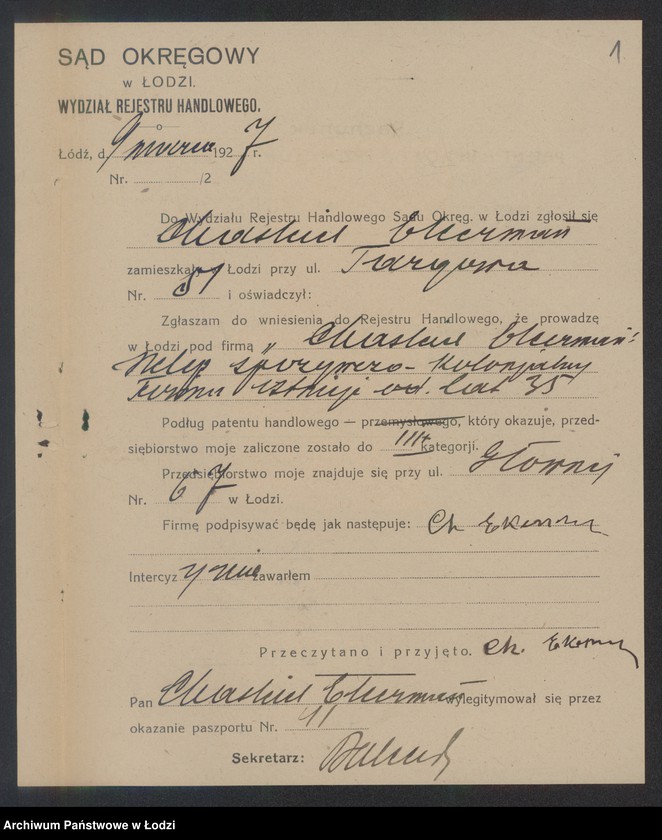 1
SĄD OKRĘGOWY
w ŁODZI.
WYDZIAŁ REJESTRU HANDLOWEGO.
Łódź, d. 9 marca 1927 r.
Nr. /2
Do Wydziału Rejestru Handlowego Sądu Okręg. w Łodzi zgłosił się
Chaskiel Ekerman
zamieszkały w Łodzi przy ul. Targowa
Nr. 51 i oświadczył:
Zgłaszam do wniesienia do Rejestru Handlowego, że prowadzę
w Łodzi pod firmą „Chaskiel Ekerman":
Sklep spożywczo-kolonjalny
Firma istnieje od lat 35
Podług patentu handlowego — przemysłowego, który okazuje, przed-
siębiorstwo moje zaliczone zostało do III kategorji.
Przedsiębiorstwo moje znajduje się przy ul. Głównej
Nr. 67 w Łodzi.
Firmę podpisywać będę jak następuje: Ch Ekerman
Intercyzy nie zawarłem
Przeczytano i przyjęto. Ch. Ekerman
Pan Chaskiel Ekerman wylegitymował się przez
okazanie paszportu Nr.
Sekretarz:
Archiwum Państwowe w Łodzi